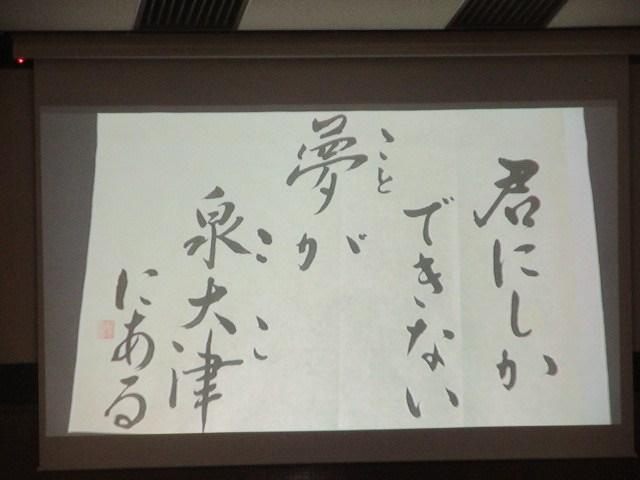 君にしか
できない
こと
夢が
ここ
泉大津
にある